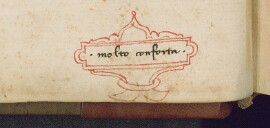 · molto conforta ·